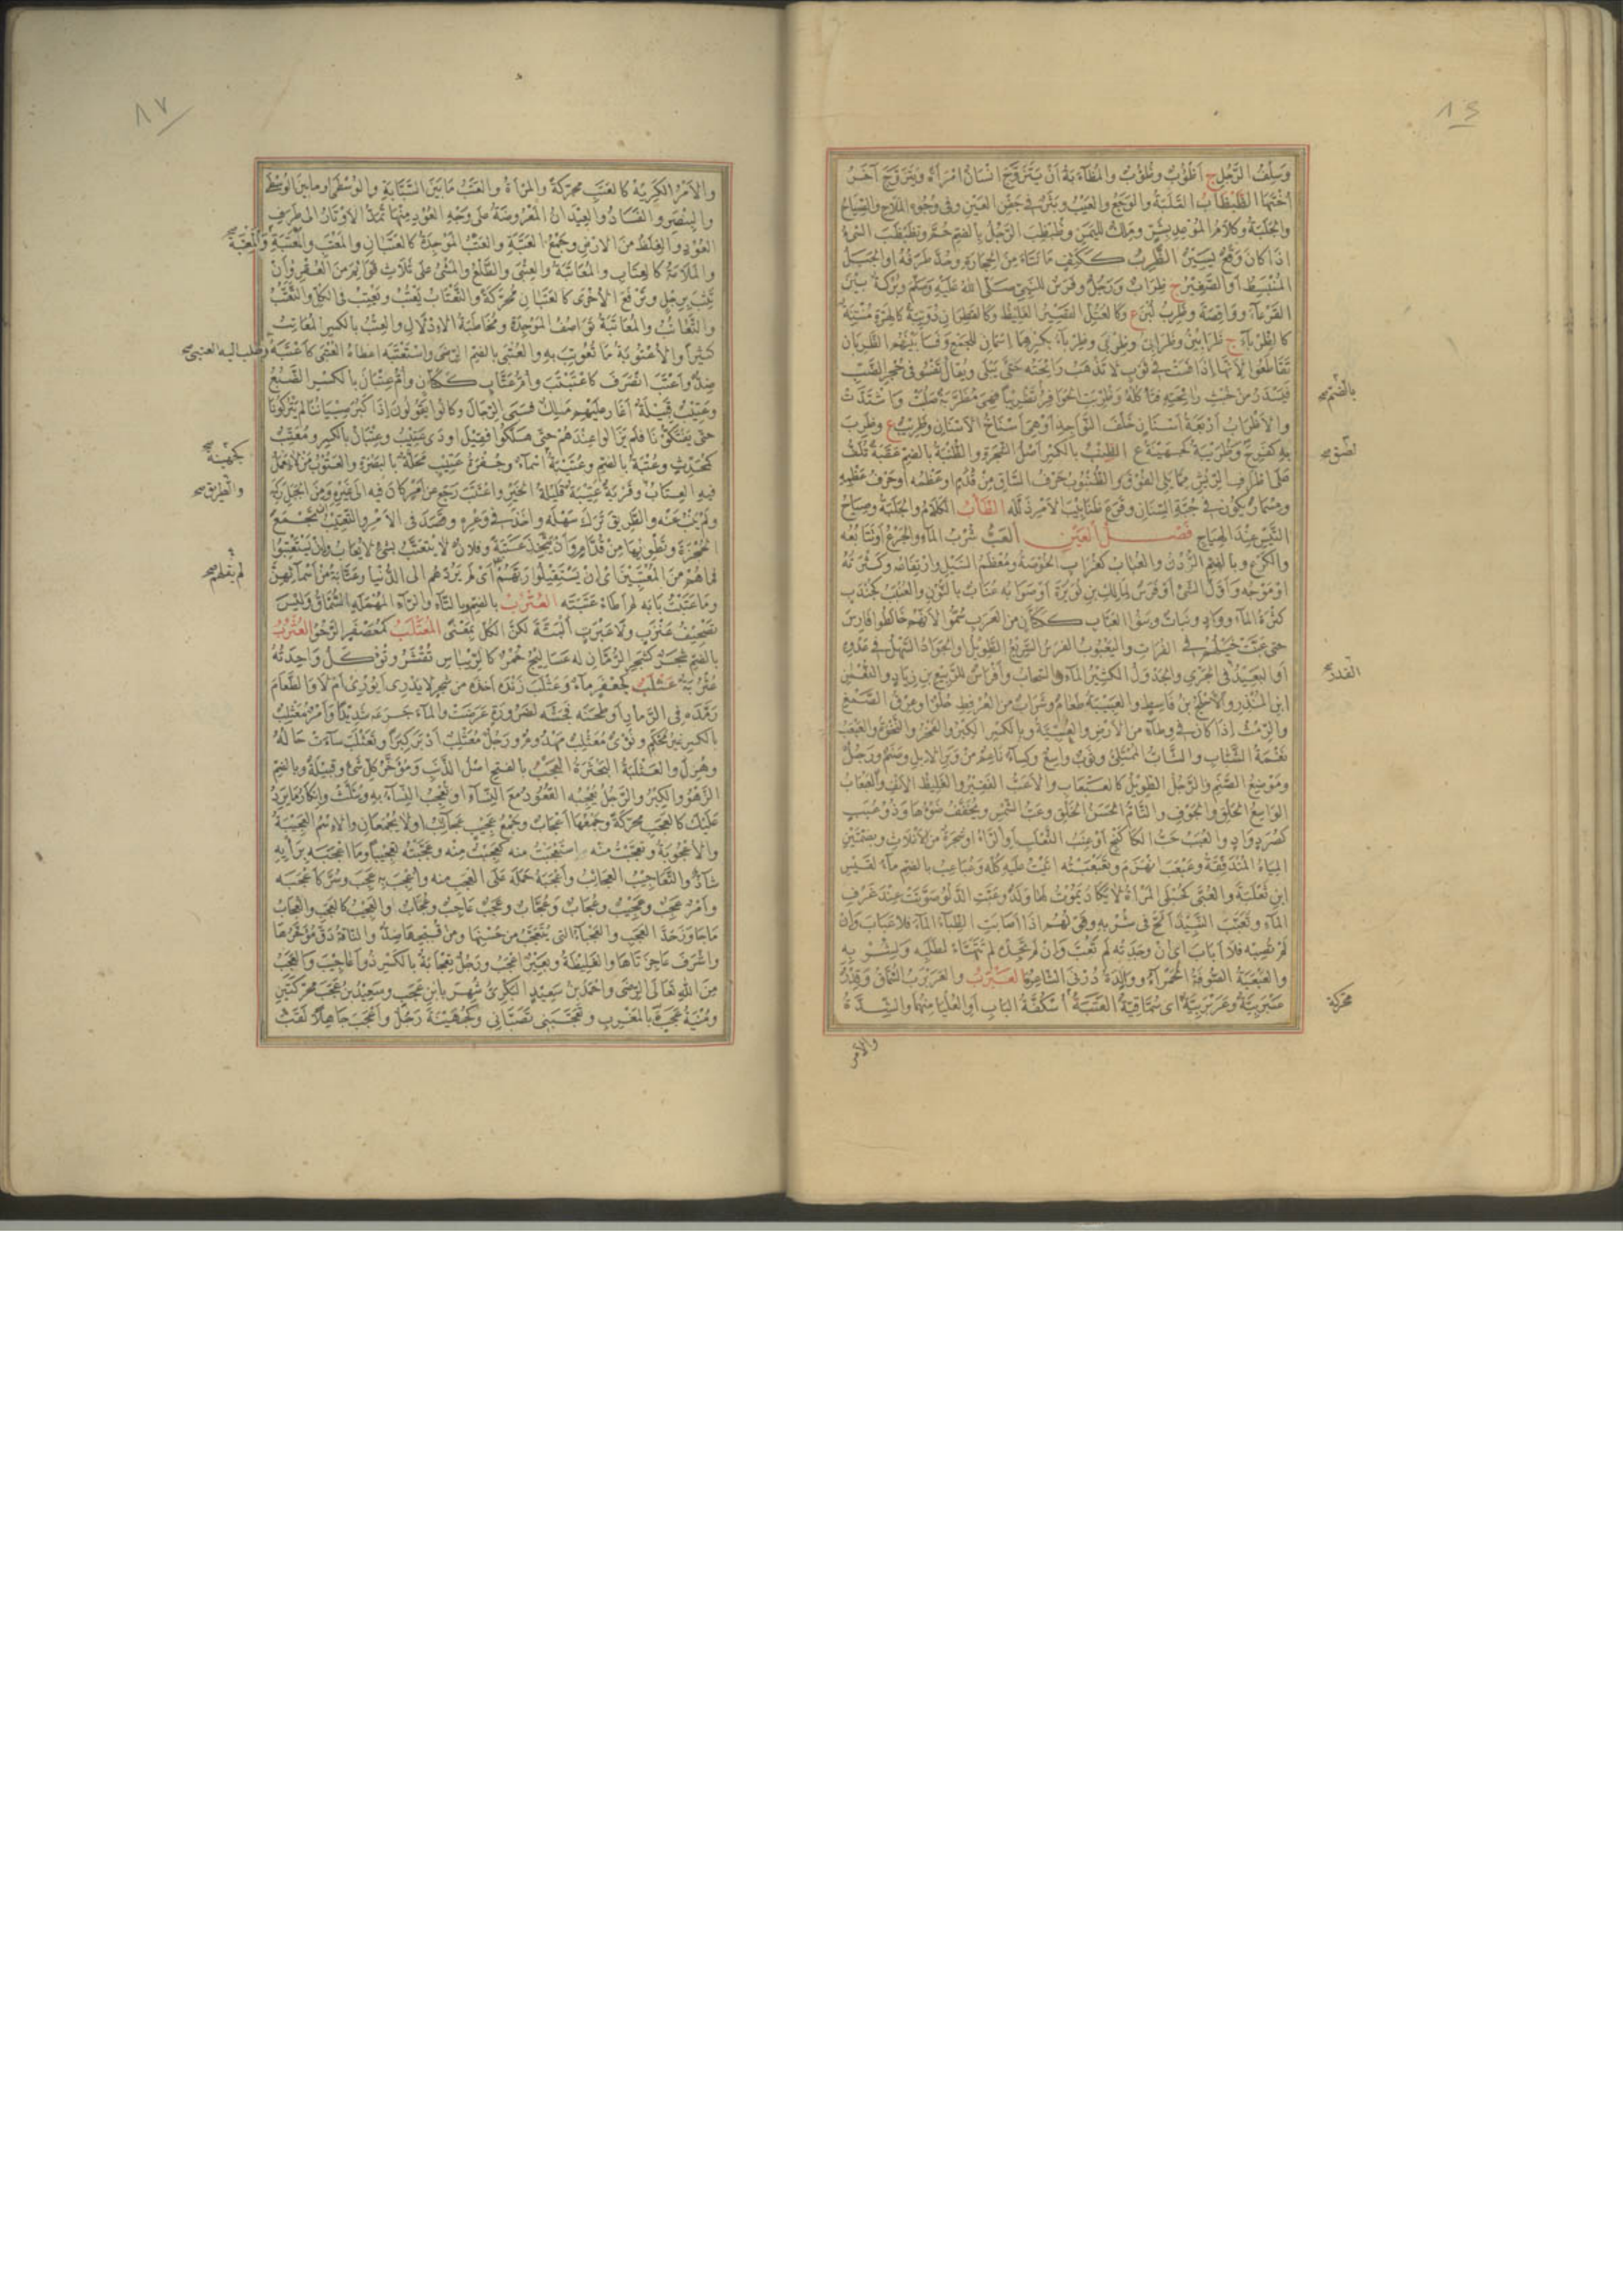 وسلف الرجل ج أظؤب وظؤوب والمظاءبة أن يتزوج إنسان امرأة ويتزوج آخر
أختها الظبظاب القلبة والوجع والعيب وبثر في جفن العين وفي وجوه الملاح والصياح
والجلبة وكلام الموعد بشر وملك لليمن وظبظب الرجل بالضم حم وتظبظب الشيء
إذا كان له وقع يسير الظرب ككتف ما نتأ من الحجارة وحد طرفه أو الجبل
المنبسط أو الصغير ج ظراب ورجل وفرس للنبي صلى الله عليه وسلم وبركة بين
القرعاء وواقصة وظرب لبن ع وكالعتل القصير الغليظ وكالقطران دويبة كالهرة منتنة
كالظرباء ج ظرابين وظرابي وظربى وظرباء بكسرهما اسمان للجمع وفسا بينهم الظربان
تقاطعوا لأنها إذا فست في ثوب لا تذهب رائحته حتى يبلى ويقال تفسو في جحر الضب
فيسدر من خبث رائحته فتأكله وظربت الحوافر تظريبا فهي مظربة صلبت واشتدت
والأظراب أربعة أسنان خلف النواجذ أو هي أسناخ الأسنان وظريب ع وظرب
به كفرح وظريبة كجهينة ع الظنب بالكسر أصل الشجرة والظنبة بالضم عقبة تلف
على أطراف الريش مما يلي الفوق والظنبوب حرف الساق من قدم أو عظمه أو حرف عظمه
ومسمار يكون في جبة السنان وقرع ظنابيب الأمر ذلله الظاب الكلام والجلبة وصياح
التيس عند الهياج فصل العين العب شرب الماء والجرع أو تتابعه
والكرع وبالضم الردن والعباب كغراب الخوصة ومعظم السيل وارتفاعه وكثرته
أو موجه وأول الشيء وفرس لمالك بن نويرة أو صوابه عناب بالنون والعنبب كجندب
كثرة الماء وواد ونبات وبنو العباب ككتان من العرب سموا لأنهم خالطوا فارس
حتى عبت خيلهم في الفرات واليعبوب الفرس السريع الطويل أو الجواد السهل في عدوه
أو البعيد في الجري والجدول الكثير الماء والسحاب وأفراس للربيع بن زياد والنعمان
ابن المنذر والأجلح بن قاسط والعبيبة طعام وشراب من العرفط حلو أو عرق الصمغ
والرمث إذا كان في وطاء من الأرض والعبية وبالكسر الكبر والفخر والنخوة والعبعب
نعمة الشباب والشاب الممتلئ وثوب واسع وكساء ناعم من وبر الإبل وصنم ورجل
وموضع الصنم والرجل الطويل كالعبعاب والأعب الفقير والغليظ الأنف والعبعاب
الواسع الحلق والجوف والتام الحسن الخلق وعب الشمس ويخفف ضوءها وذو عبب
كصرد واد والعبب حب الكاكنج أو عنب الثعلب أو الراء أو شجرة من الأغلاث وبضمتين
المياه المتدفقة وعبعب انهزم وتعبعبته أتيت عليه كله وعباعب بالضم ماء لقيس
ابن ثعلبة والعبى كحبلى المرأة لا يكاد يموت لها ولد وعبت الدلو صوتت عند غرف
الماء وتعبب النبيذ ألح في شربه وقولهم إذا أصابت الظباء الماء فلا عباب وإن
لم تصبه فلا أباب أي إن وجدته لم تعب وإن لم تجده لم تتهيأ لطلبه ولشربه
والعبعبة الصوفة الحمراء ووالدة درنى الشاعرة العبرب والعربرب السماق وقدر
عبربية وعربربية أي سماقية العتبة أسكفة الباب أو العليا منهما والشدة
والأمر
بالضم صح
لضيق صح
القدر صح
محركة
والأمر الكريه كالعتب محركة والمرأة والعتب ما بين السبابة والوسطى أو ما بين الوسطى
والبنصر والفساد والعيدان المعروضة على وجه العود منها تمد الأوتار إلى طرف
العود والغلظ من الأرض وجمع العتبة والعتب الموجدة كالعتبان والمعتب والمعتبة والمعتبة
والملامة كالعتاب والمعاتبة والعتبى والظلع والمشي على ثلاث قوائم من العقر وأن
تثب برجل وترفع الأخرى كالعتبان محركة والتعتاب يعتب ويعتب في الكل والتعتب
والتعاتب والمعاتبة تواصف الموجدة ومخاطبة الإدلال والعتب بالكسر المعاتب
كثيرا والأعتوبة ما تعوتب به والعتبى بالضم الرضى واستعتبه أعطاه العتبى كأعتبه وطلب إليه العتبى صح
ضد وأعتب انصرف كاعتتب وأم عتاب ككتان وأم عتبان بالكسر الضبع
وعتيب قبيلة أغار عليهم ملك فسبى الرجال وكانوا يقولون إذا كبر صبياننا لم يتركونا
حتى يفتكونا فلم يزالوا عندهم حتى هلكوا فقيل أودى عتيب وعتبان بالكسر ومعتب
كمحدث وعتبة بالضم وعتيبة أسماء وجفرة عتيب محلة بالبصرة والعتوب من لا يعمل
فيه العتاب وقرية عتيبة قليلة الخير واعتتب رجع عن أمر كان فيه إلى غيره ومن الجبل ركبه
ولم ينب عنه والطريق ترك سهله وأخذ في وعره وقصد في الأمر والتعتيب أن تجمع
الحجزة وتطويها من قدام وأن تتخذ عتبة وفلان لا يتعتب بشيء لا يعاب وإن يستعتبوا
فما هم من المعتبين أي إن يستقيلوا ربهم أي لم يردهم إلى الدنيا وعتابة من أسمائهن
وما عتبت بابه لم أطأ عتبته العترب بالضم وبالتاء والراء المهملة السماق وليس
تصحيف عنزب ولا عبرب البتة لكن الكل بمعنى المعتلب كمعصفر الرخو العثرب
بالضم شجر كشجر الرمان له عساليج حمر كالريباس تقشر وتؤكل واحدته
عثربة عثلب كجعفر ماء وعثلب زنده أخذه من شجر لا يدري أيوري أم لا والطعام
رمده في الرماد أو طحنه فجشه لضرورة عرضت والماء جرعه شديدا وأمر معثلب
بالكسر غير محكم ونؤى معثلب مهدوم ورجل معثلب أدبر كبرا وتعثلب ساءت حاله
وهزل والعثلبة البحثرة العجب بالفتح أصل الذنب ومؤخر كل شيء وقبيلة وبالضم
الزهو والكبر والرجل يعجبه القعود مع النساء أو تعجب النساء به ويثلث وإنكار ما يرد
عليك كالعجب محركة وجمعها أعجاب وجمع عجيب عجائب أو لا يجمعان والاسم العجيبة
والأعجوبة وتعجبت منه واستعجبت منه كعجبت منه وعجبته تعجيبا وما أعجبه برأيه
شاذ والتعاجيب العجائب وأعجبه حمله على العجب منه وأعجب به عجب وسر كأعجبه
وأمر عجب وعجيب وعجاب وعجاب وعجب عاجب وعجاب أو العجيب كالعجب والعجاب
ما جاوز حد العجب والعجباء التي يتعجب من حسنها ومن قبحها ضد والناقة دق مؤخرها
وأشرف جاعرتاها والغليظة وبعير أعجب ورجل تعجابة بالكسر ذو أعاجيب والعجب
من الله تعالى الرضى وأحمد بن سعيد البكري شهر بابن عجب وسعيد بن عجب محركتين
ومنية عجب بالمغرب وتعجبني تصباني وكجهينة رجل وأعجب جاهلا لقب
كجهينة صح
والطريق صح
لم يفهم صح